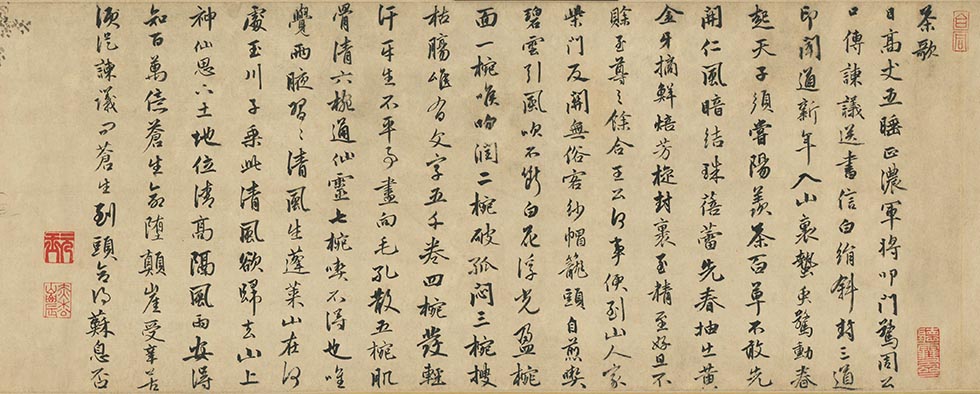 茶歌
日高丈五睡正濃軍將叩門驚周公
口傳諫議送書信白絹斜封三道
印聞道新年入山裏蟄虫驚動春
起天子須嘗陽羨茶百草不敢先
開仁風暗結珠蓓蕾先春抽出黄
金牙摘鮮焙芳旋封裹至精至好且不
賒至尊之餘合王公何事便到山人家
柴門反關無俗客紗帽籠頭自煎喫
碧雲引風吹不斷白花浮光盈椀
面一椀喉吻潤二椀破孤悶三椀搜
枯膓唯有文字五千卷四椀發輕
汗平生不平事盡向毛孔散五椀肌
骨清六椀通仙靈七椀喫不得也唯
覺兩腋習〻清風生蓬萊山在何
處玉川子乘此清風欲歸去山上
神仙思下土地位清高隔風雨安得
知百萬億蒼生命墮顛崖受辛苦
須從諫議問蒼生到頭合得蘇息否